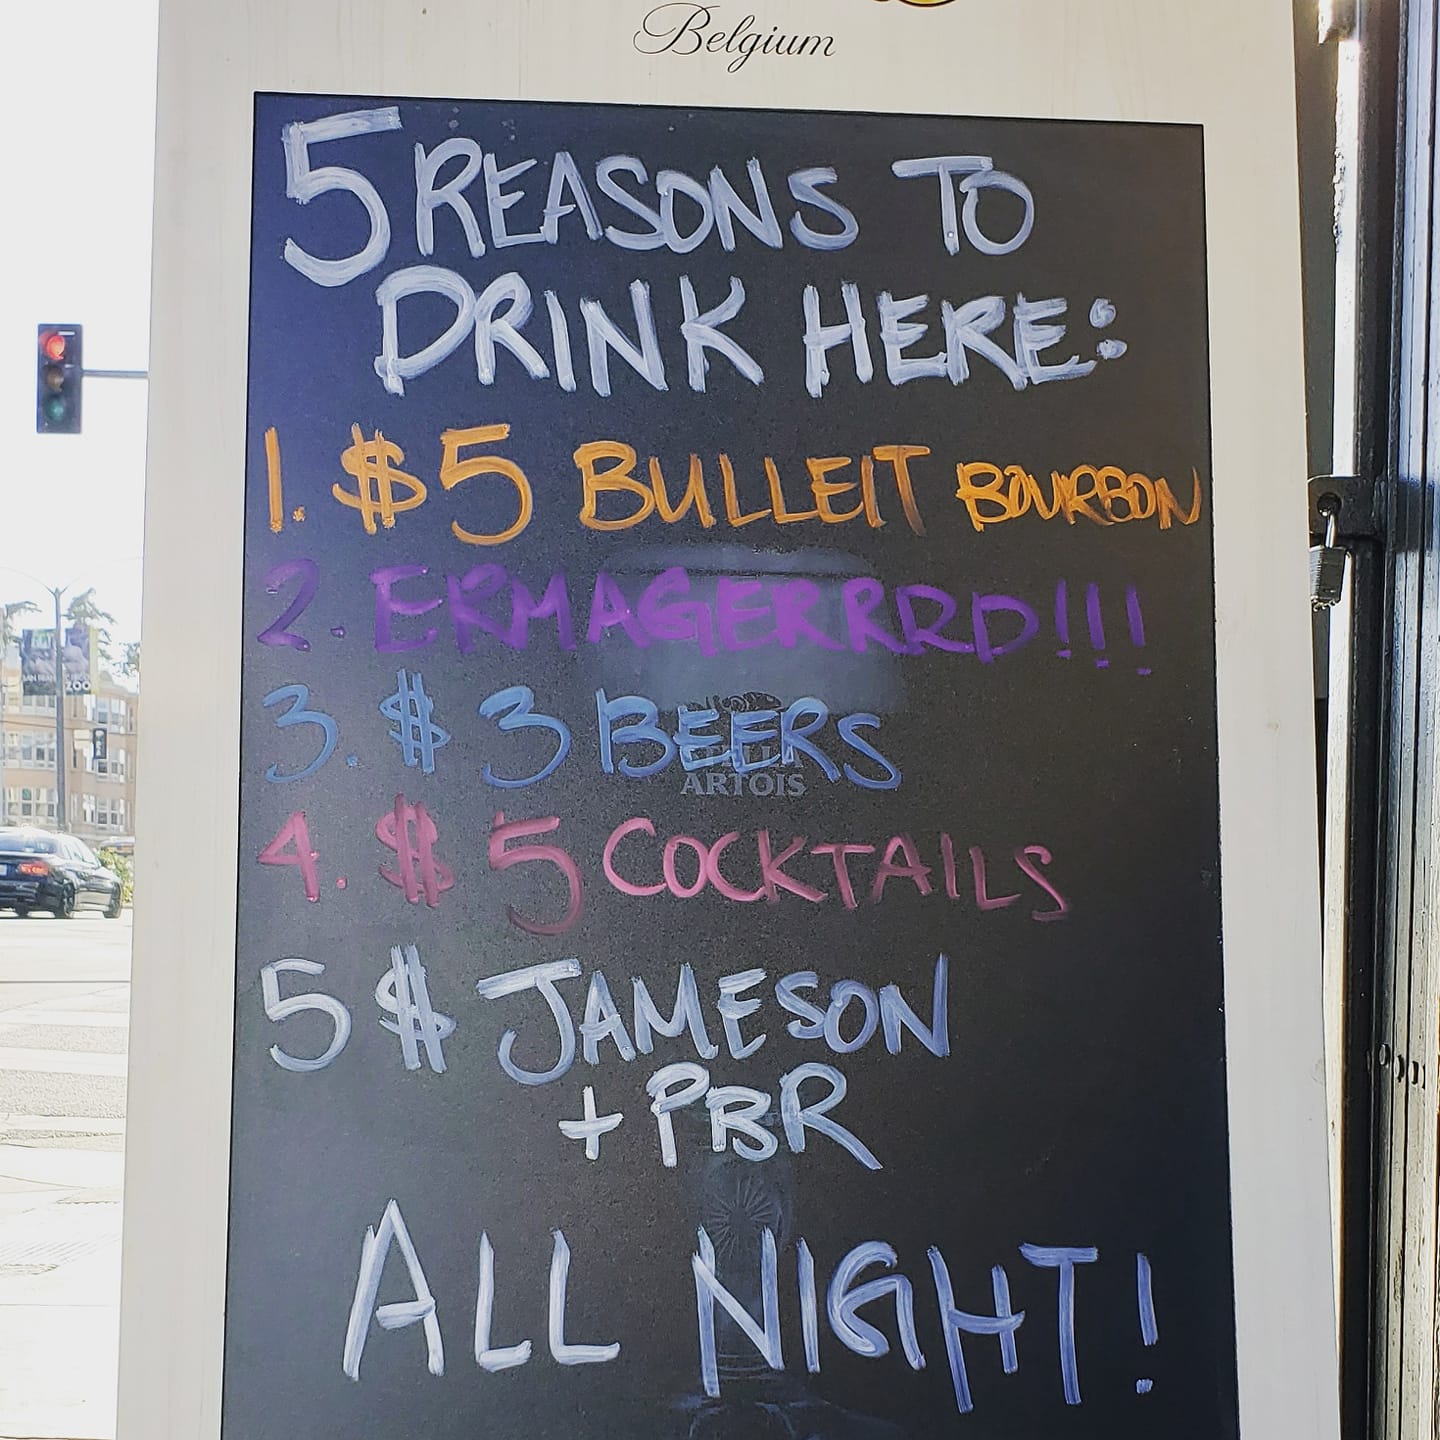 Belgium
5 REASONS TO
DRINK HERE:
1. $5 BULLEIT BOURBON
2. ERMAGERRRD!!!
3. $3 BEERS
ARTOIS
4. $5 COCKTAILS
5 $ JAMESON
+ PBR
ALL NIGHT!
ZOO